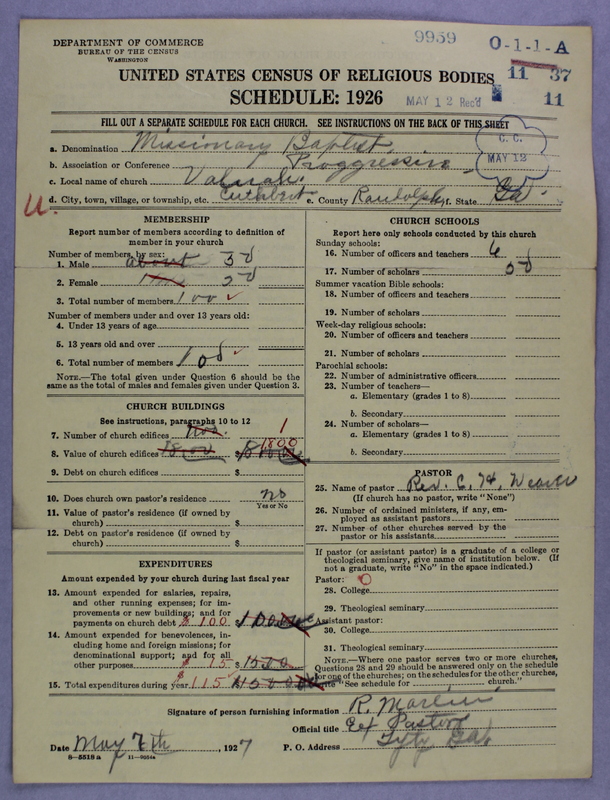 DEPARTMENT OF COMMERCE
BUREAU OF THE CENSUS
WASHINGTON
9959
O-1-1-A
UNITED STATES CENSUS OF RELIGIOUS BODIES
11 37
SCHEDULE: 1926
MAY 12 Rec'd
11
FILL OUT A SEPARATE SCHEDULE FOR EACH CHURCH. SEE INSTRUCTIONS ON THE BACK OF THIS SHEET
C. C.
MAY 12
a. Denomination Missionary Baptist
b. Association or Conference Proggressive
c. Local name of church
d. City, town, village, or township, etc. Cuthbert e. County Randolph f. State Ga.
U.
MEMBERSHIP
Report number of members according to definition of
member in your church
Number of members, by sex:
1. Male about 50
2. Female 50
3. Total number of members 100
Number of members under and over 13 years old:
4. Under 13 years of age
5. 13 years old and over
6. Total number of members 100
NOTE.—The total given under Question 6 should be the
same as the total of males and females given under Question 3.
CHURCH BUILDINGS
See instructions, paragraphs 10 to 12
7. Number of church edifices 1
8. Value of church edifices $ 1800
9. Debt on church edifices $
10. Does church own pastor's residence no
Yes or No
11. Value of pastor's residence (if owned by
church) $
12. Debt on pastor's residence (if owned by
church) $
EXPENDITURES
Amount expended by your church during last fiscal year
13. Amount expended for salaries, repairs,
and other running expenses; for im-
provements or new buildings; and for
payments on church debt $ 100
14. Amount expended for benevolences, in-
cluding home and foreign missions; for
denominational support; and for all
other purposes $ 15 $ 1500
15. Total expenditures during year $ 115
CHURCH SCHOOLS
Report here only schools conducted by this church
Sunday schools:
16. Number of officers and teachers 6
17. Number of scholars 50
Summer vacation Bible schools:
18. Number of officers and teachers
19. Number of scholars
Week-day religious schools:
20. Number of officers and teachers
21. Number of scholars
Parochial schools:
22. Number of administrative officers
23. Number of teachers—
a. Elementary (grades 1 to 8)
b. Secondary
24. Number of scholars—
a. Elementary (grades 1 to 8)
b. Secondary
PASTOR
25. Name of pastor Rev. C. H.
(If church has no pastor, write "None")
26. Number of ordained ministers, if any, em-
ployed as assistant pastors
27. Number of other churches served by the
pastor or his assistants
If pastor (or assistant pastor) is a graduate of a college or
theological seminary, give name of institution below. (If
not a graduate, write "No" in the space indicated.)
Pastor: O
28. College
29. Theological seminary
Assistant pastor:
30. College
31. Theological seminary
NOTE.—Where one pastor serves two or more churches,
Questions 28 and 29 should be answered only on the schedule
for one of the churches; on the schedules for the other churches,
write "See schedule for church."
Signature of person furnishing information R.
Official title Ex Pastor
Date May 7th, 1927 P. O. Address Ga.
8—5518 a